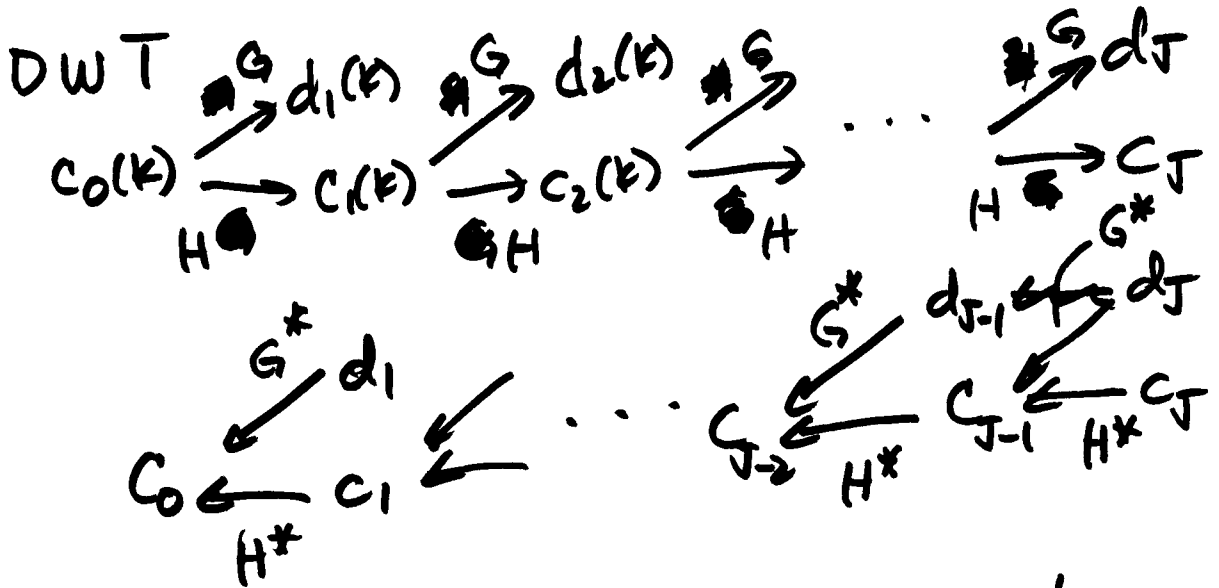 DWT G d₁(k) G d₂(k) G G d_J
c₀(k) → c₁(k) → c₂(k) → ... → c_J
H H H H
G* d₁ G* d_{J-1} ← d_J G*
C₀ ← c₁ ← ... C_{J-2} ← C_{J-1} ← C_J
H* H* H*